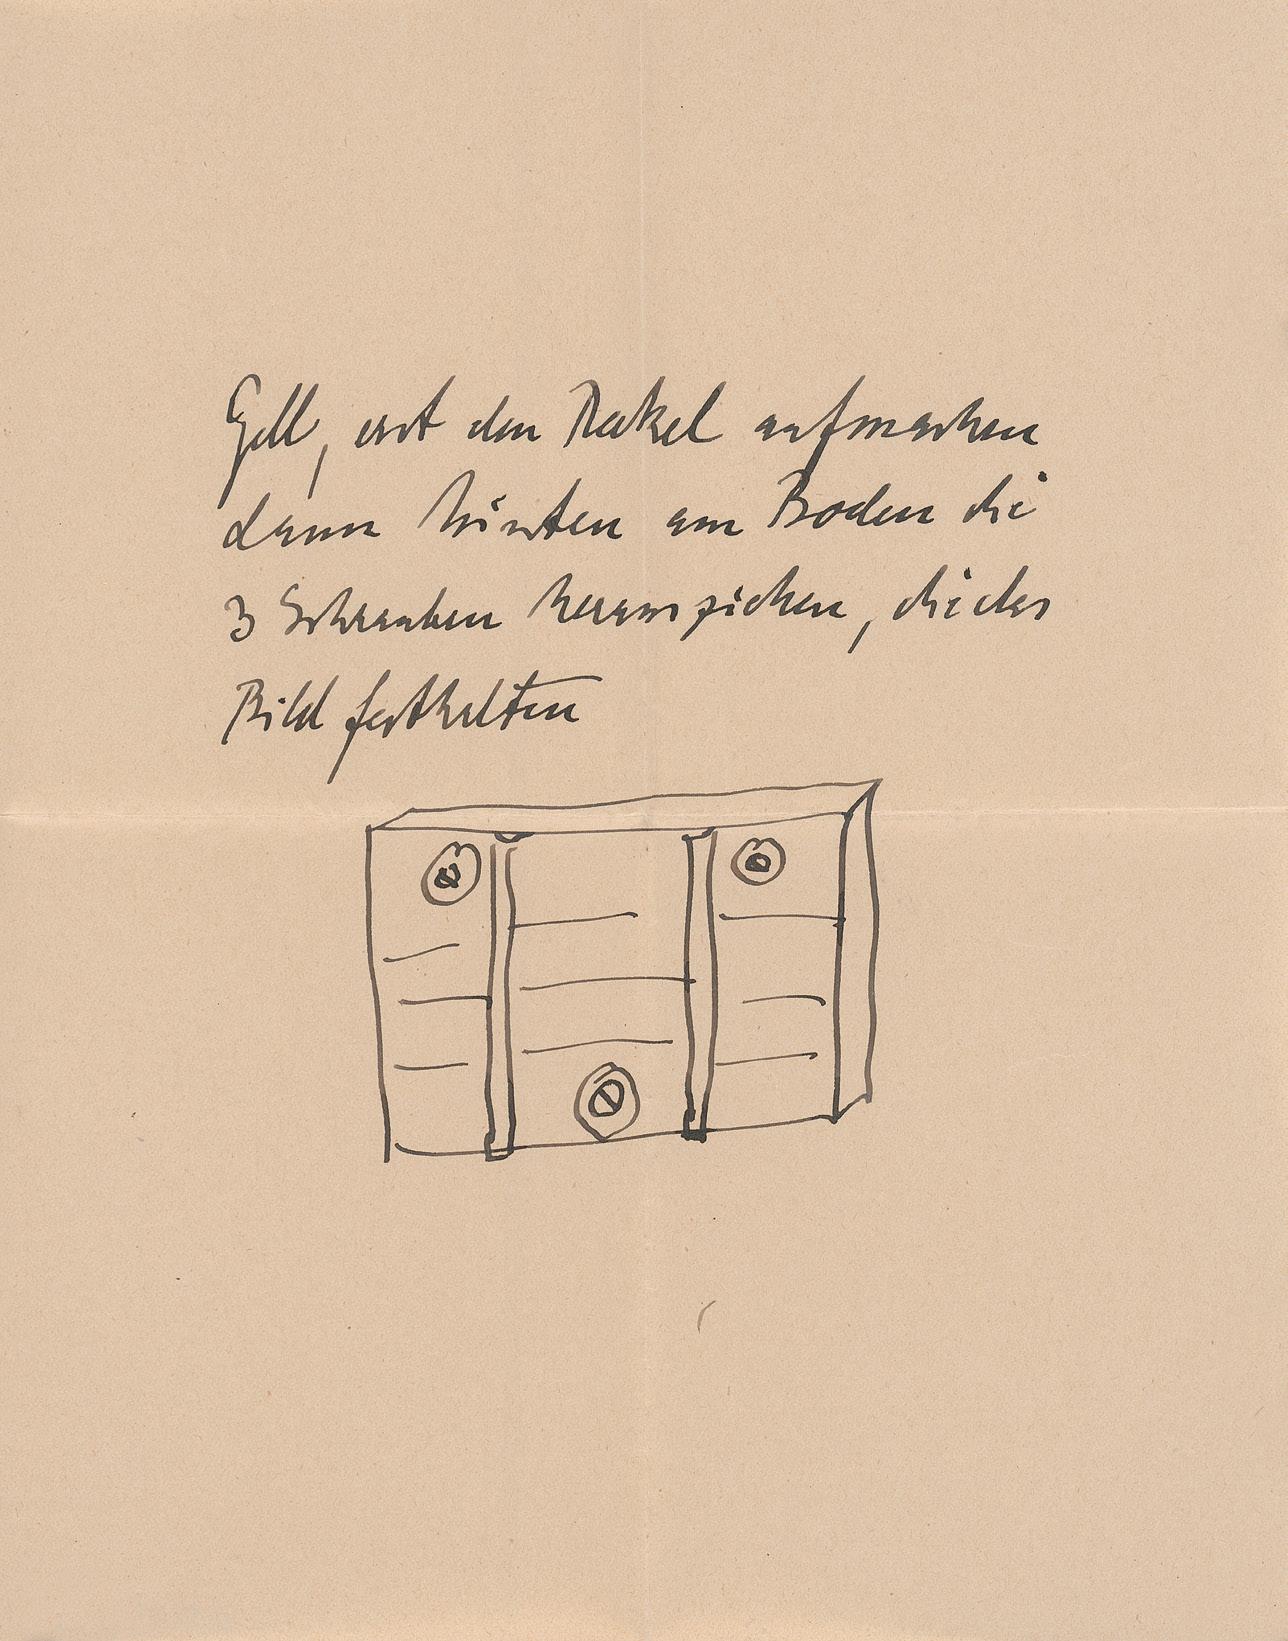 Gell, erst den Dekel aufmachen
dann hinten am Boden die
3 Schrauben herausziehen, die das
Bild festhalten